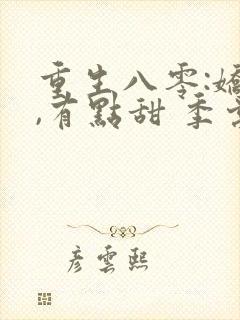 重生八零:嬌
,有點甜 季
彥雲熙